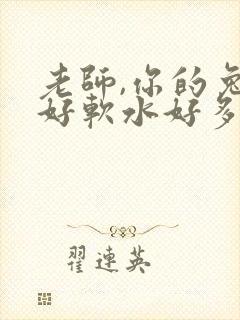 老師,你的兔
好軟水好多
翟連英